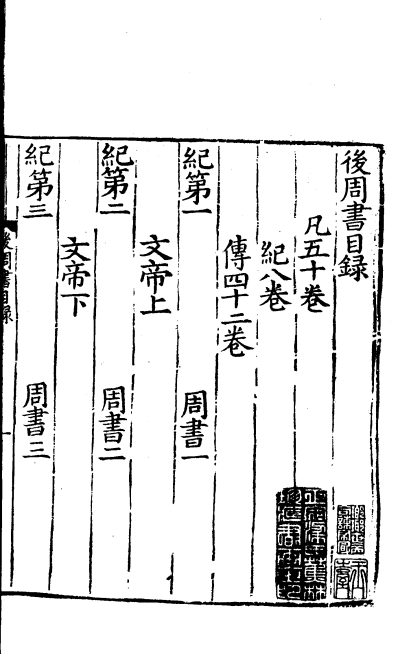 後周書目録
凡五十卷
紀八卷
傳四十二卷
紀第一 周書一
文帝上
紀第二 周書二
文帝下
紀第三 周書三
後周書目錄
一